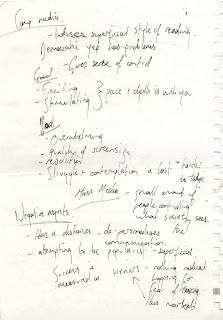 Comp media
- Induces superficial style of reading.
Democratic yet has problems
- Gives sense of control
Good
- Exciting
- Stimulating } pace + depth is with you
Bad
- overwhelming
- quality of screen size
- resolution
- Struggle + contemplation a lost
Mass Media - small amount of
people controlling
what society sees.
Negative aspects
- Has a distance - de-personalises the
communication.
- attempting to be populist - superficial
Success is measured in viewers - nothing radical
happens for
fear of losing
their markets